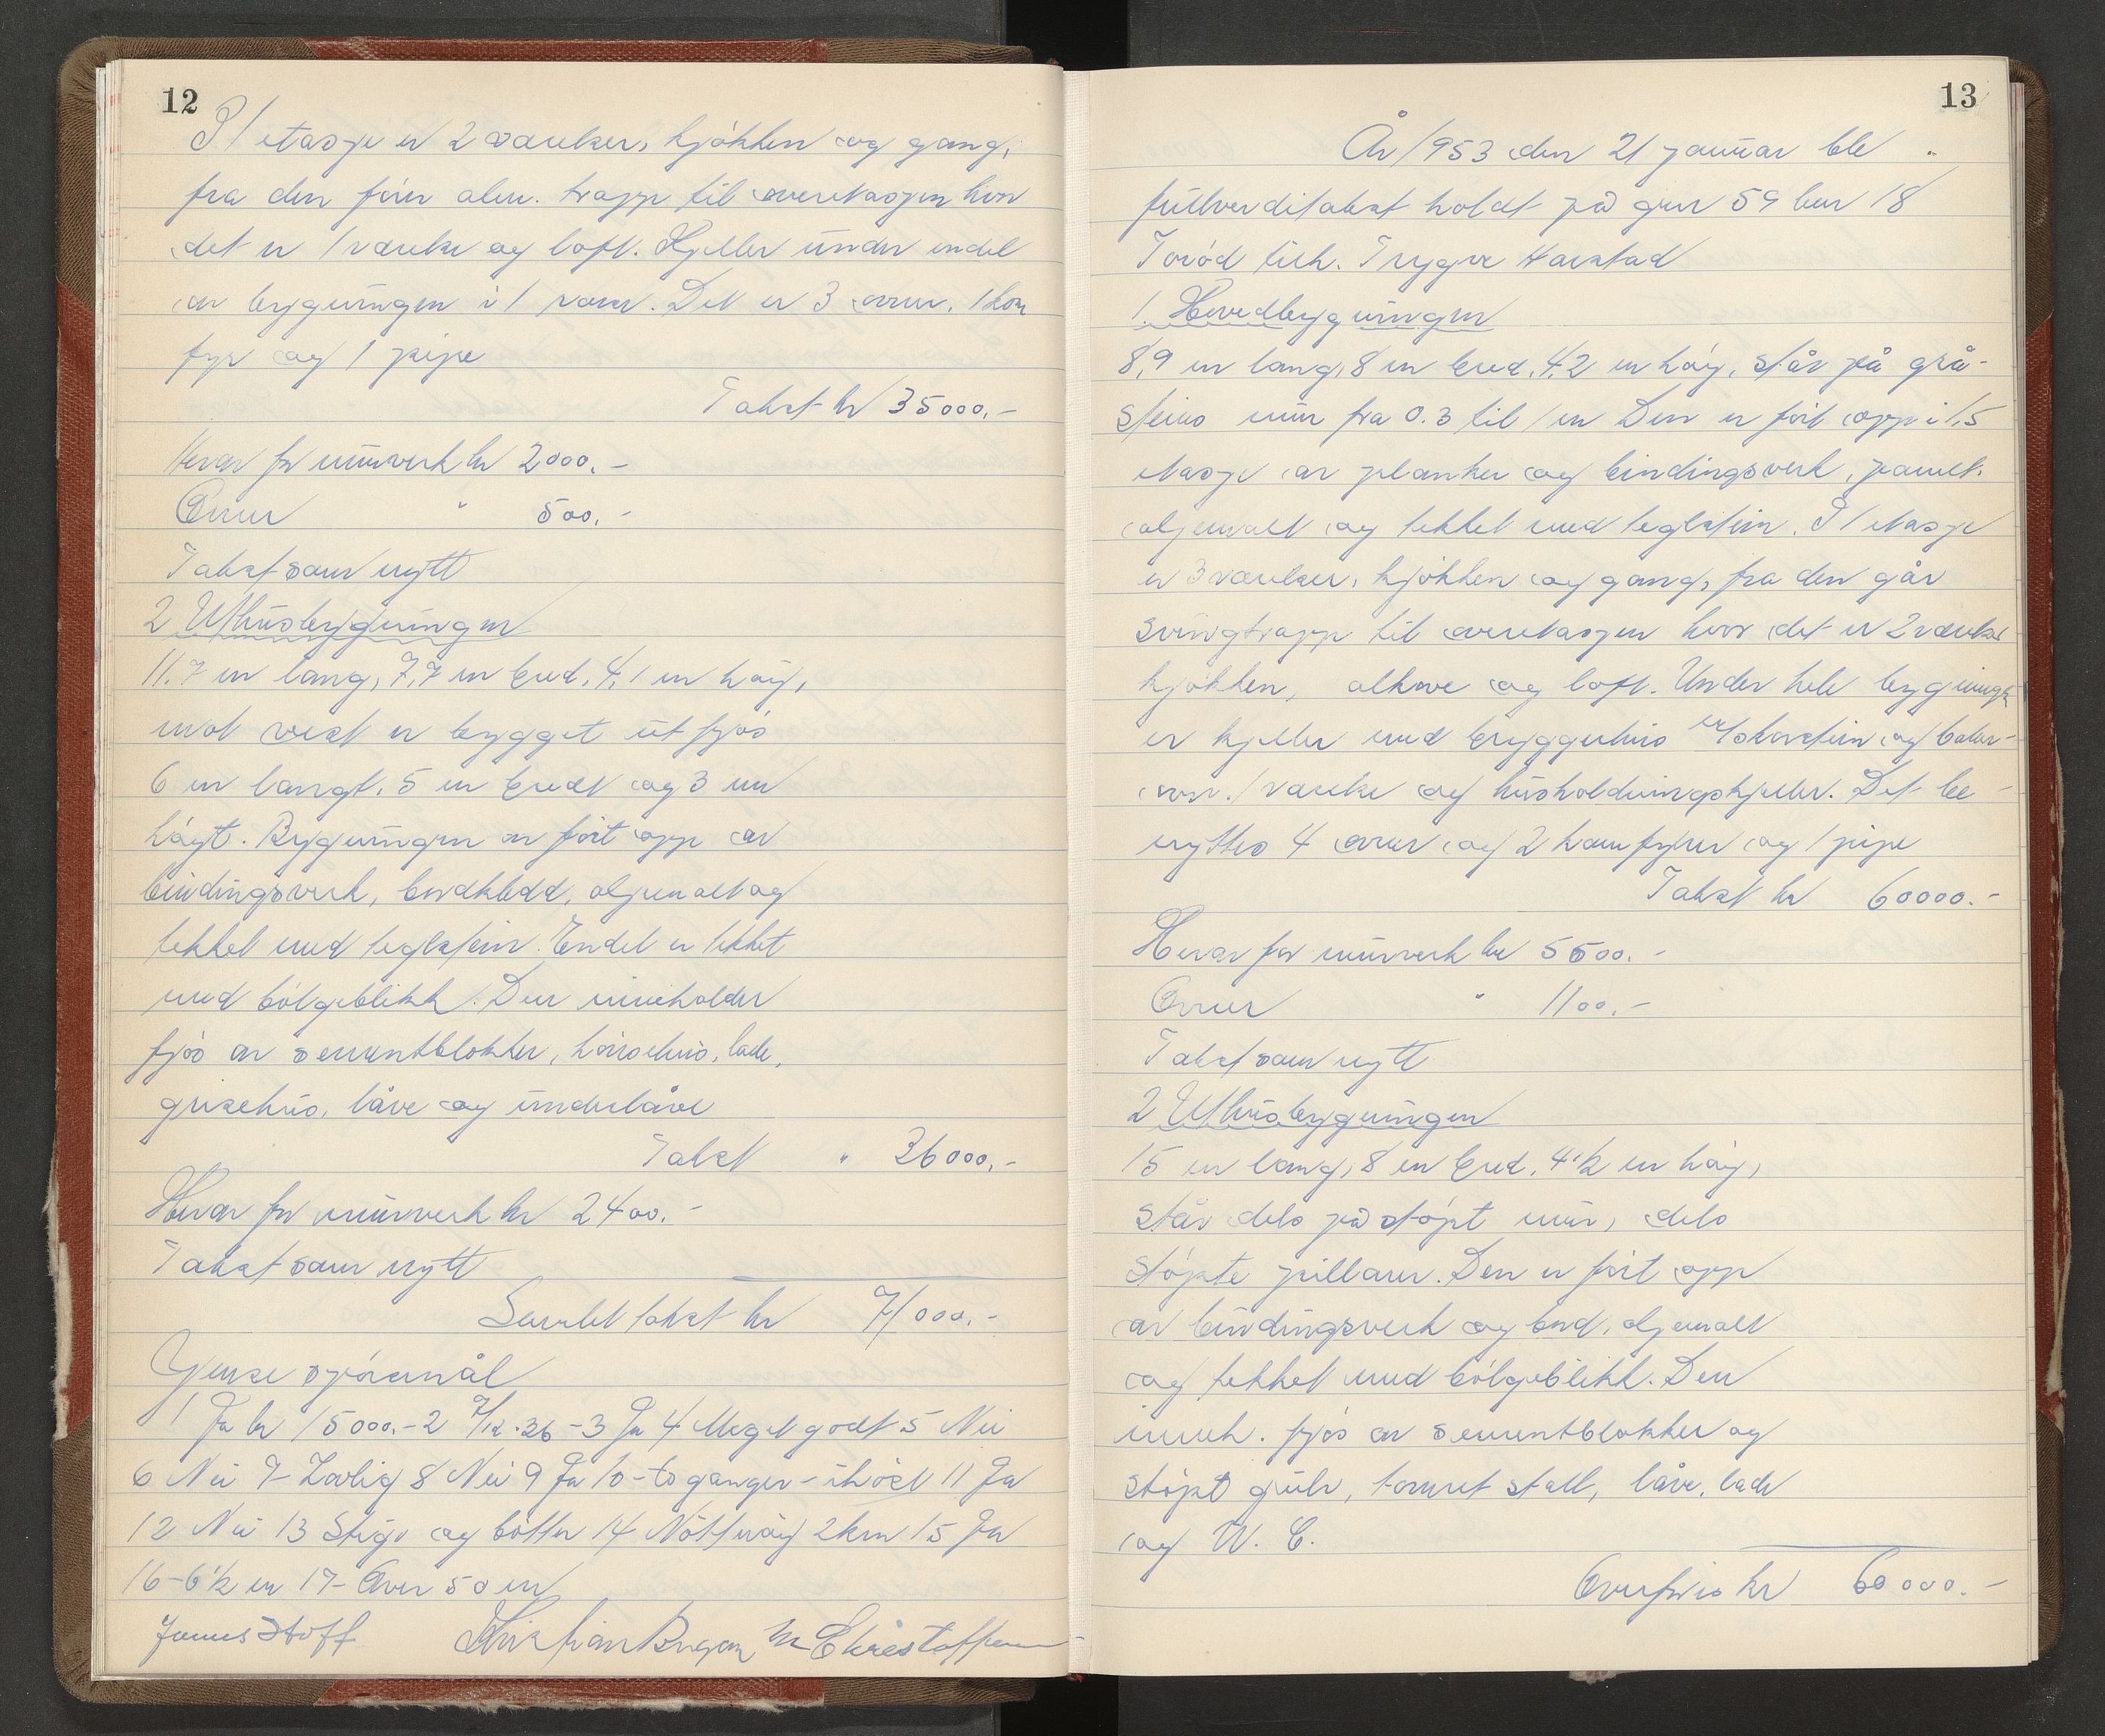 12
I 1 etasje er 2 værelser, kjøkken og gang,
fra den fører alm. trapp til overetasjen hvor
det er 1 værelse og loft. Kjeller under endel
av bygningen i 1 rom. Det er 3 ovner, 1 kom
fyr og 1 pipe
Takst kr 35000.-
Herav for murverk kr 2000.-
Ovner " 500.-
Takst som nytt
2 Uthusbygningen
11.7 m lang, 7,7 m bred, 4,1 m høy,
mot vest er bygget ut fjøs
6 m langt, 5 m bredt og 3 m
høyt. Bygningen er ført opp av
bindingsverk, bordkledd, oljemalt og
tekket med teglstein. Endel er tekket
med bølgeblikk. Den inneholder
fjøs av sementblokker, hønsehus, lade,
grisehus, låve og underlåve
Takst " 36000.-
Herav for murverk kr 2400.-
Takst som nytt
Samlet takst kr 71000.-
Gjense spørsmål
1 Ja kr 15000.- 2 7/12-36 - 3 Ja 4 Meget godt 5 Nei
6 Nei 7- Lovlig 8 Nei 9 Ja 10 - to ganger - i höst 11 Ja
12 Nei 13 Stige og bøtter 14 Nøtterøy 2 km 15 Ja
16 - 6 1/2 m 17 - Over 50 m
James Hoff Kristian Bugan M Christoffersen
13
År 1953 den 21 januar ble
fullverditakst holdt på gnr 59 bnr 18
Torød tilh. Trygve Harstad
1. Hovedbygningen
8,9 m lang, 8 m bred, 4,2 m høy, står på grå-
steins mur fra 0.3 til 1 m Den er ført opp i 1,5
etasje av planker og bindingsverk, panelt.
oljemalt og tekket med teglstein. I 1 etasje
er 3 værelser, kjøkken og gang, fra den går
svingtrapp til overetasjen hvor det er 2 værelser
kjøkken, alkove og loft. Under hele bygningen
er kjeller med bryggerhus m/skorstein og bake-
ovn. 1 værelse og husholdningskjeller. Det be-
nyttes 4 ovner og 2 komfyrer og 1 pipe
Takst kr 60000.-
Herav for murverk kr 5500.-
Ovner " 1100.-
Takst som nytt
2 Uthusbygningen
15 m lang, 8 m bred, 4 1/2 m høy,
står dels på støpt mur, dels
støpte pillarer. Den er ført opp
av bindingsverk og bord, oljemalt
og tekket med bølgeblikk. Den
inneh. fjøs av sementblokker og
støpt gulv, tømret stall, låve, lade
og W. C.
Overføres kr 60000.-